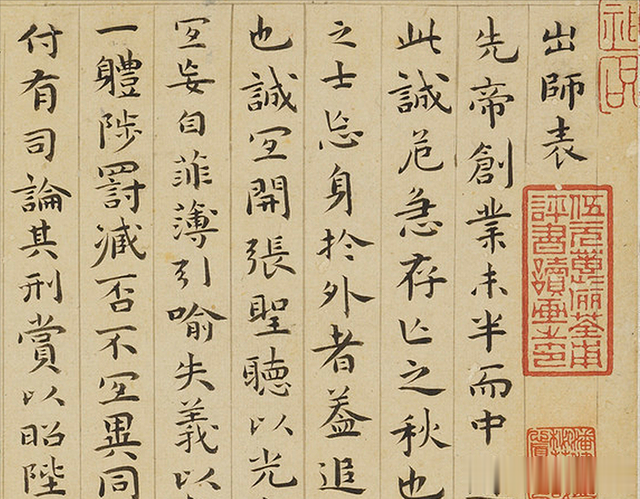 出師表
先帝創業未半而中
此誠危急存亡之秋也
之士忘身於外者蓋追
也誠宜開張聖聽以光
宜妄自菲薄引喻失義以
一體陟罰臧否不宜異同
付有司論其刑賞以昭陛
伍元蕙儷荃甫
評書讀畫之印